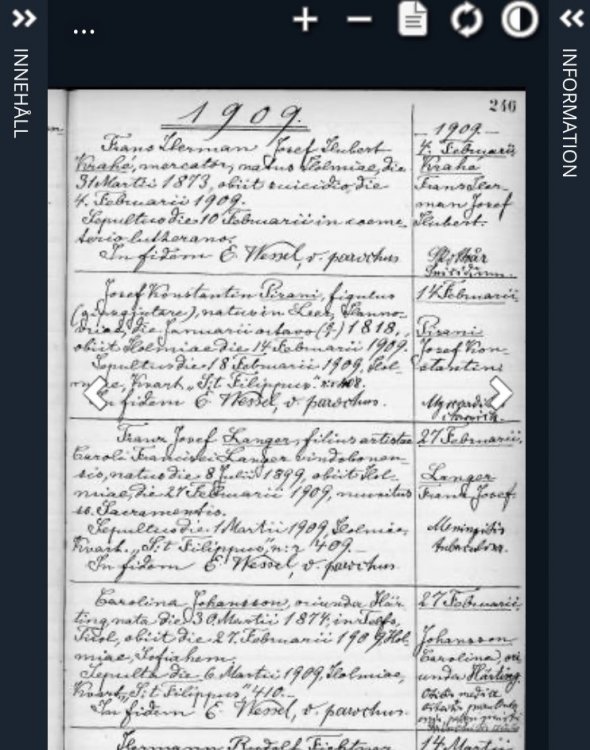 ...
INNEHÅLL
INFORMATION
246
1909.
Frans Herman Josef Hubert
Krahé, mercator, natus Holmiae, die
31 Martii 1873, obiit suicidio, die
4. Februarii 1909.
Sepultus die 10 Februarii in coeme-
terio lutherano.
In fidem E. Wessel, v. parochus
Josef Konstantin Pirani, figulus
natus in Leer, Hanno-
die Januarii octavo (8) 1818,
obiit Holmiae die 14 Februarii 1909.
Sepultus die 18 Februarii 1909, Hol-
miae, Kvart. „S:t Filippus" n:o 408.
In fidem E. Wessel, v. parochus.
Franz Josef Langer, filius artistae
Caroli Francisci Langer vindobonen-
sis, natus die 8 Julii 1899, obiit Hol-
miae, die 27 Februarii 1909, munitus
ss. Sacramentis.
Sepultus die 1 Martii 1909, Holmiae,
Kvart. „S:t Filippus", n:r 409.
In fidem E. Wessel, v. parochus
Carolina Johansson, oriunda Här
ting, nata die 30 Martii 1874, in Telfs,
Tirol, obiit die 27. Februarii 1909 Hol
miae, Sofiahem.
Sepulta die 6 Martii 1909, Holmiae,
Kvart. „S:t Filippus" 410.
In fidem E. Wessel, v. parochus.
Hermann Rudolf
1909.
4. Februarii
Krahé
Frans Her-
man Josef
Hubert.
Suicidium.
14 Februarii
Pirani
Josef Kon-
stantin
27 Februarii.
Langer
Franz Josef.
Meningitis
tuberculosa.
27 Februarii
Johansson
Carolina, ori
unda Härting.
14 Martii